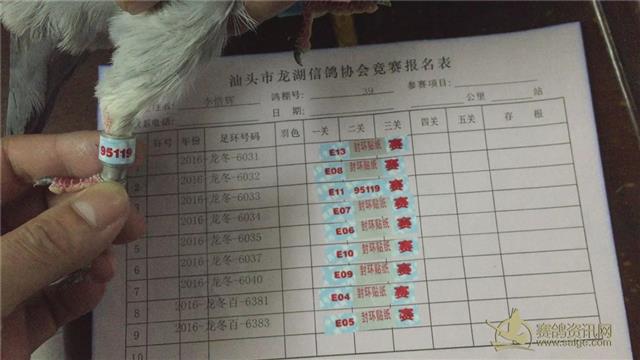 汕头市龙湖信鸽协会竞赛报名表
李惜辉 鸽棚号: 39 参赛项目:
电话: 日期: 公里 站
环号 年份 足环号码 羽色 一关 二关 三关 四关 五关 存根
95119
1 2016-龙冬-6031 E13 封环贴纸 赛
2 2016-龙冬-6032 E08 封环贴纸 赛
3 2016-龙冬-6033 E11 95119 赛
4 2016-龙冬-6034 E07 封环贴纸 赛
5 2016-龙冬-6035 E06 封环贴纸 赛
6 2016-龙冬-6037 E10 封环贴纸 赛
7 2016-龙冬-6040 E09 封环贴纸 赛
8 2016-龙冬百-6381 E04 封环贴纸 赛
9 2016-龙冬百-6383 E05 封环贴纸 赛
10
赛鸽资讯网
www.saige.com